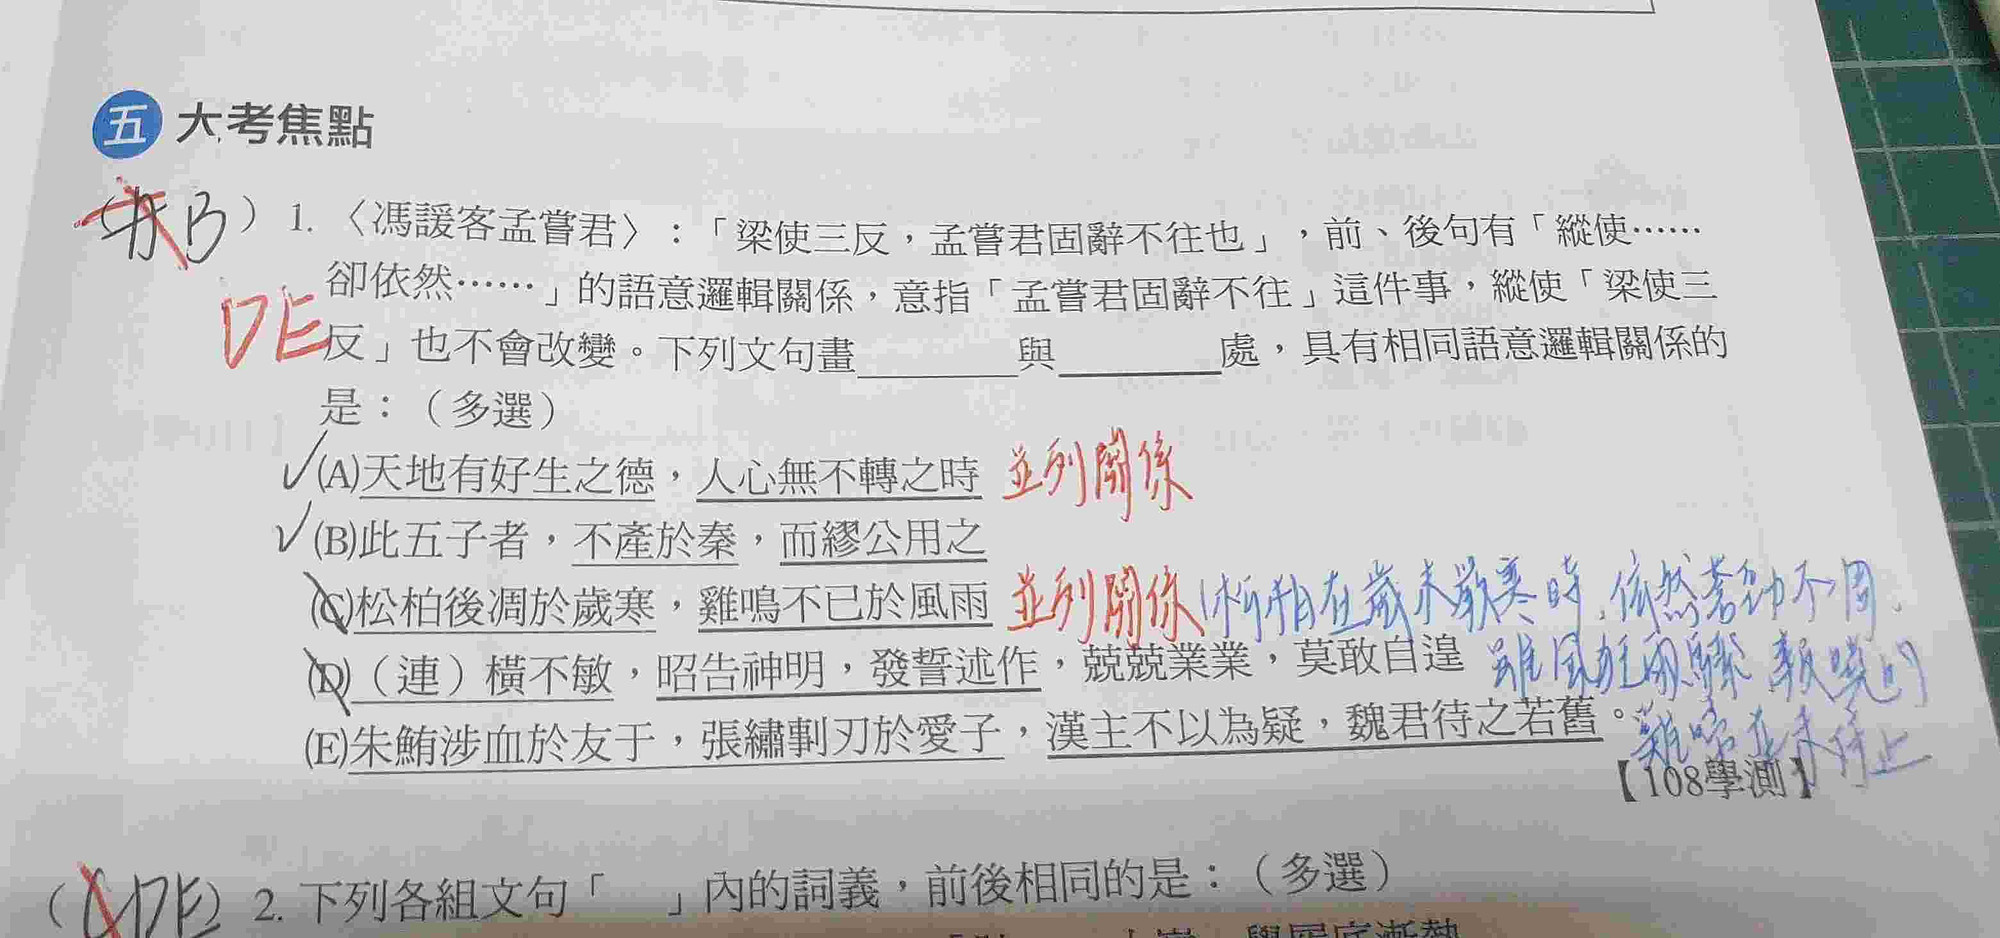 五 大考焦點
B）1.〈馮諼客孟嘗君〉：「梁使三反，孟嘗君固辭不往也」，前、後句有「縱使……
卻依然……」的語意邏輯關係，意指「孟嘗君固辭不往」這件事，縱使「梁使三
DE
反」也不會改變。下列文句畫______與______處，具有相同語意邏輯關係的
是：（多選）
(A)天地有好生之德，人心無不轉之時 並列關係
(B)此五子者，不產於秦，而繆公用之
(C)松柏後凋於歲寒，雞鳴不已於風雨 並列關係 松柏在歲末嚴寒時，依然蒼勁不凋、
(D)（連）橫不敏，昭告神明，發誓述作，兢兢業業，莫敢自遑 雖風狂雨驟 報曉的
(E)朱鮪涉血於友于，張繡剚刃於愛子，漢主不以為疑，魏君待之若舊。雞啼並未停止
【108學測】
DE）2. 下列各組文句「 」內的詞義，前後相同的是：（多選）